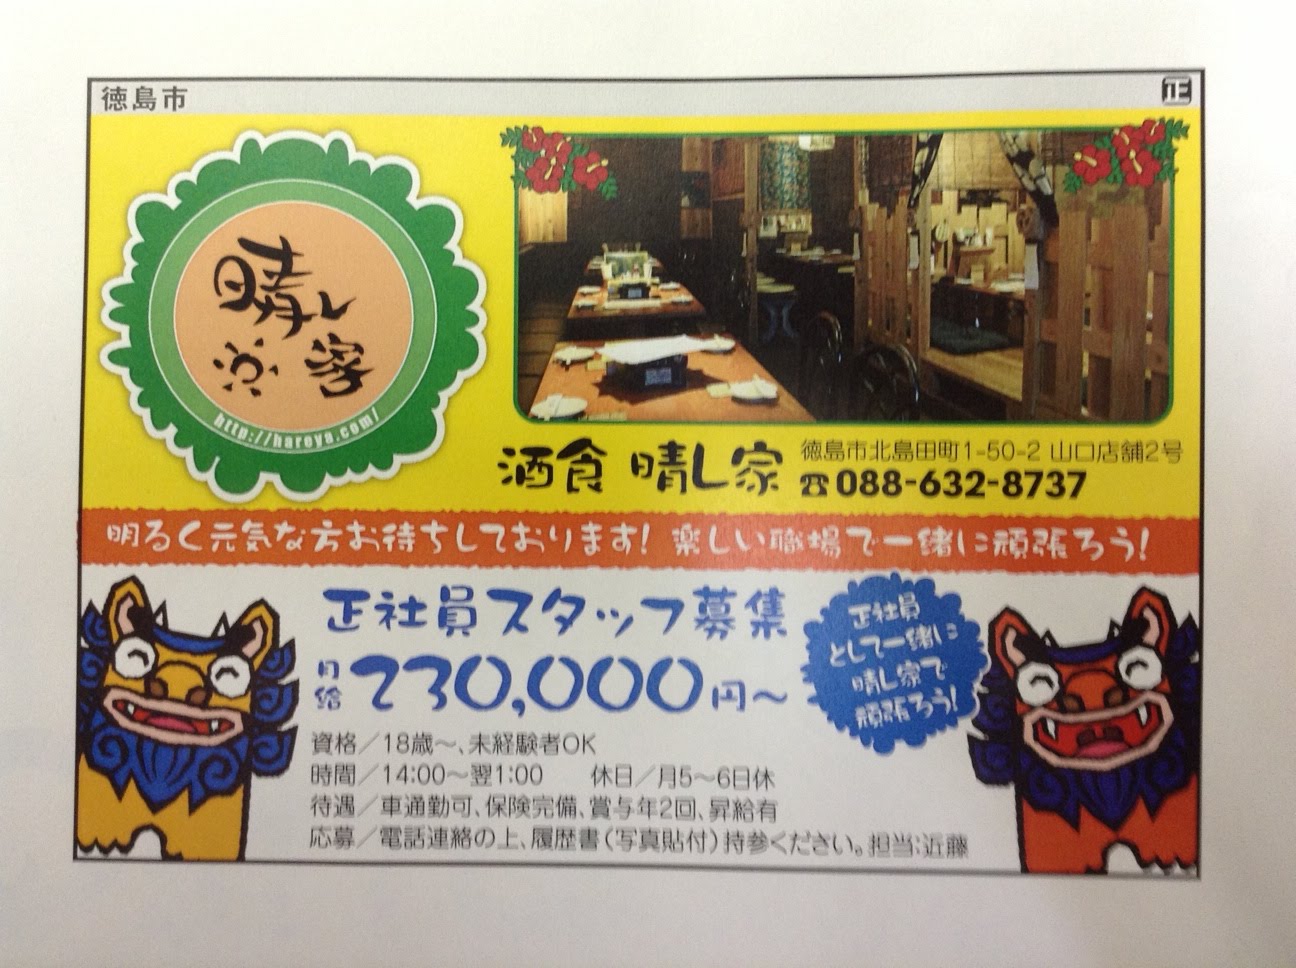 徳島市
正
晴レ
客
http://hareya.com/
酒食 晴し家
徳島市北島田町1-50-2 山口店舗2号
☎088-632-8737
明るく元気な方お待ちしております! 楽しい職場で一緒に頑張ろう!
正社員スタッフ募集
月給230,000円～
正社員
として一緒に
晴し家で
頑張ろう!
資格／18歳～、未経験者OK
時間／14:00～翌1:00　休日／月5～6日休
待遇／車通勤可、保険完備、賞与年2回、昇給有
応募／電話連絡の上、履歴書(写真貼付)持参ください。担当:近藤